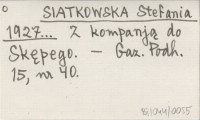 SIATKOWSKA Stefania
1927... Z kompanją do
Skępego. — Gaz. Podh.
15, nr 40.